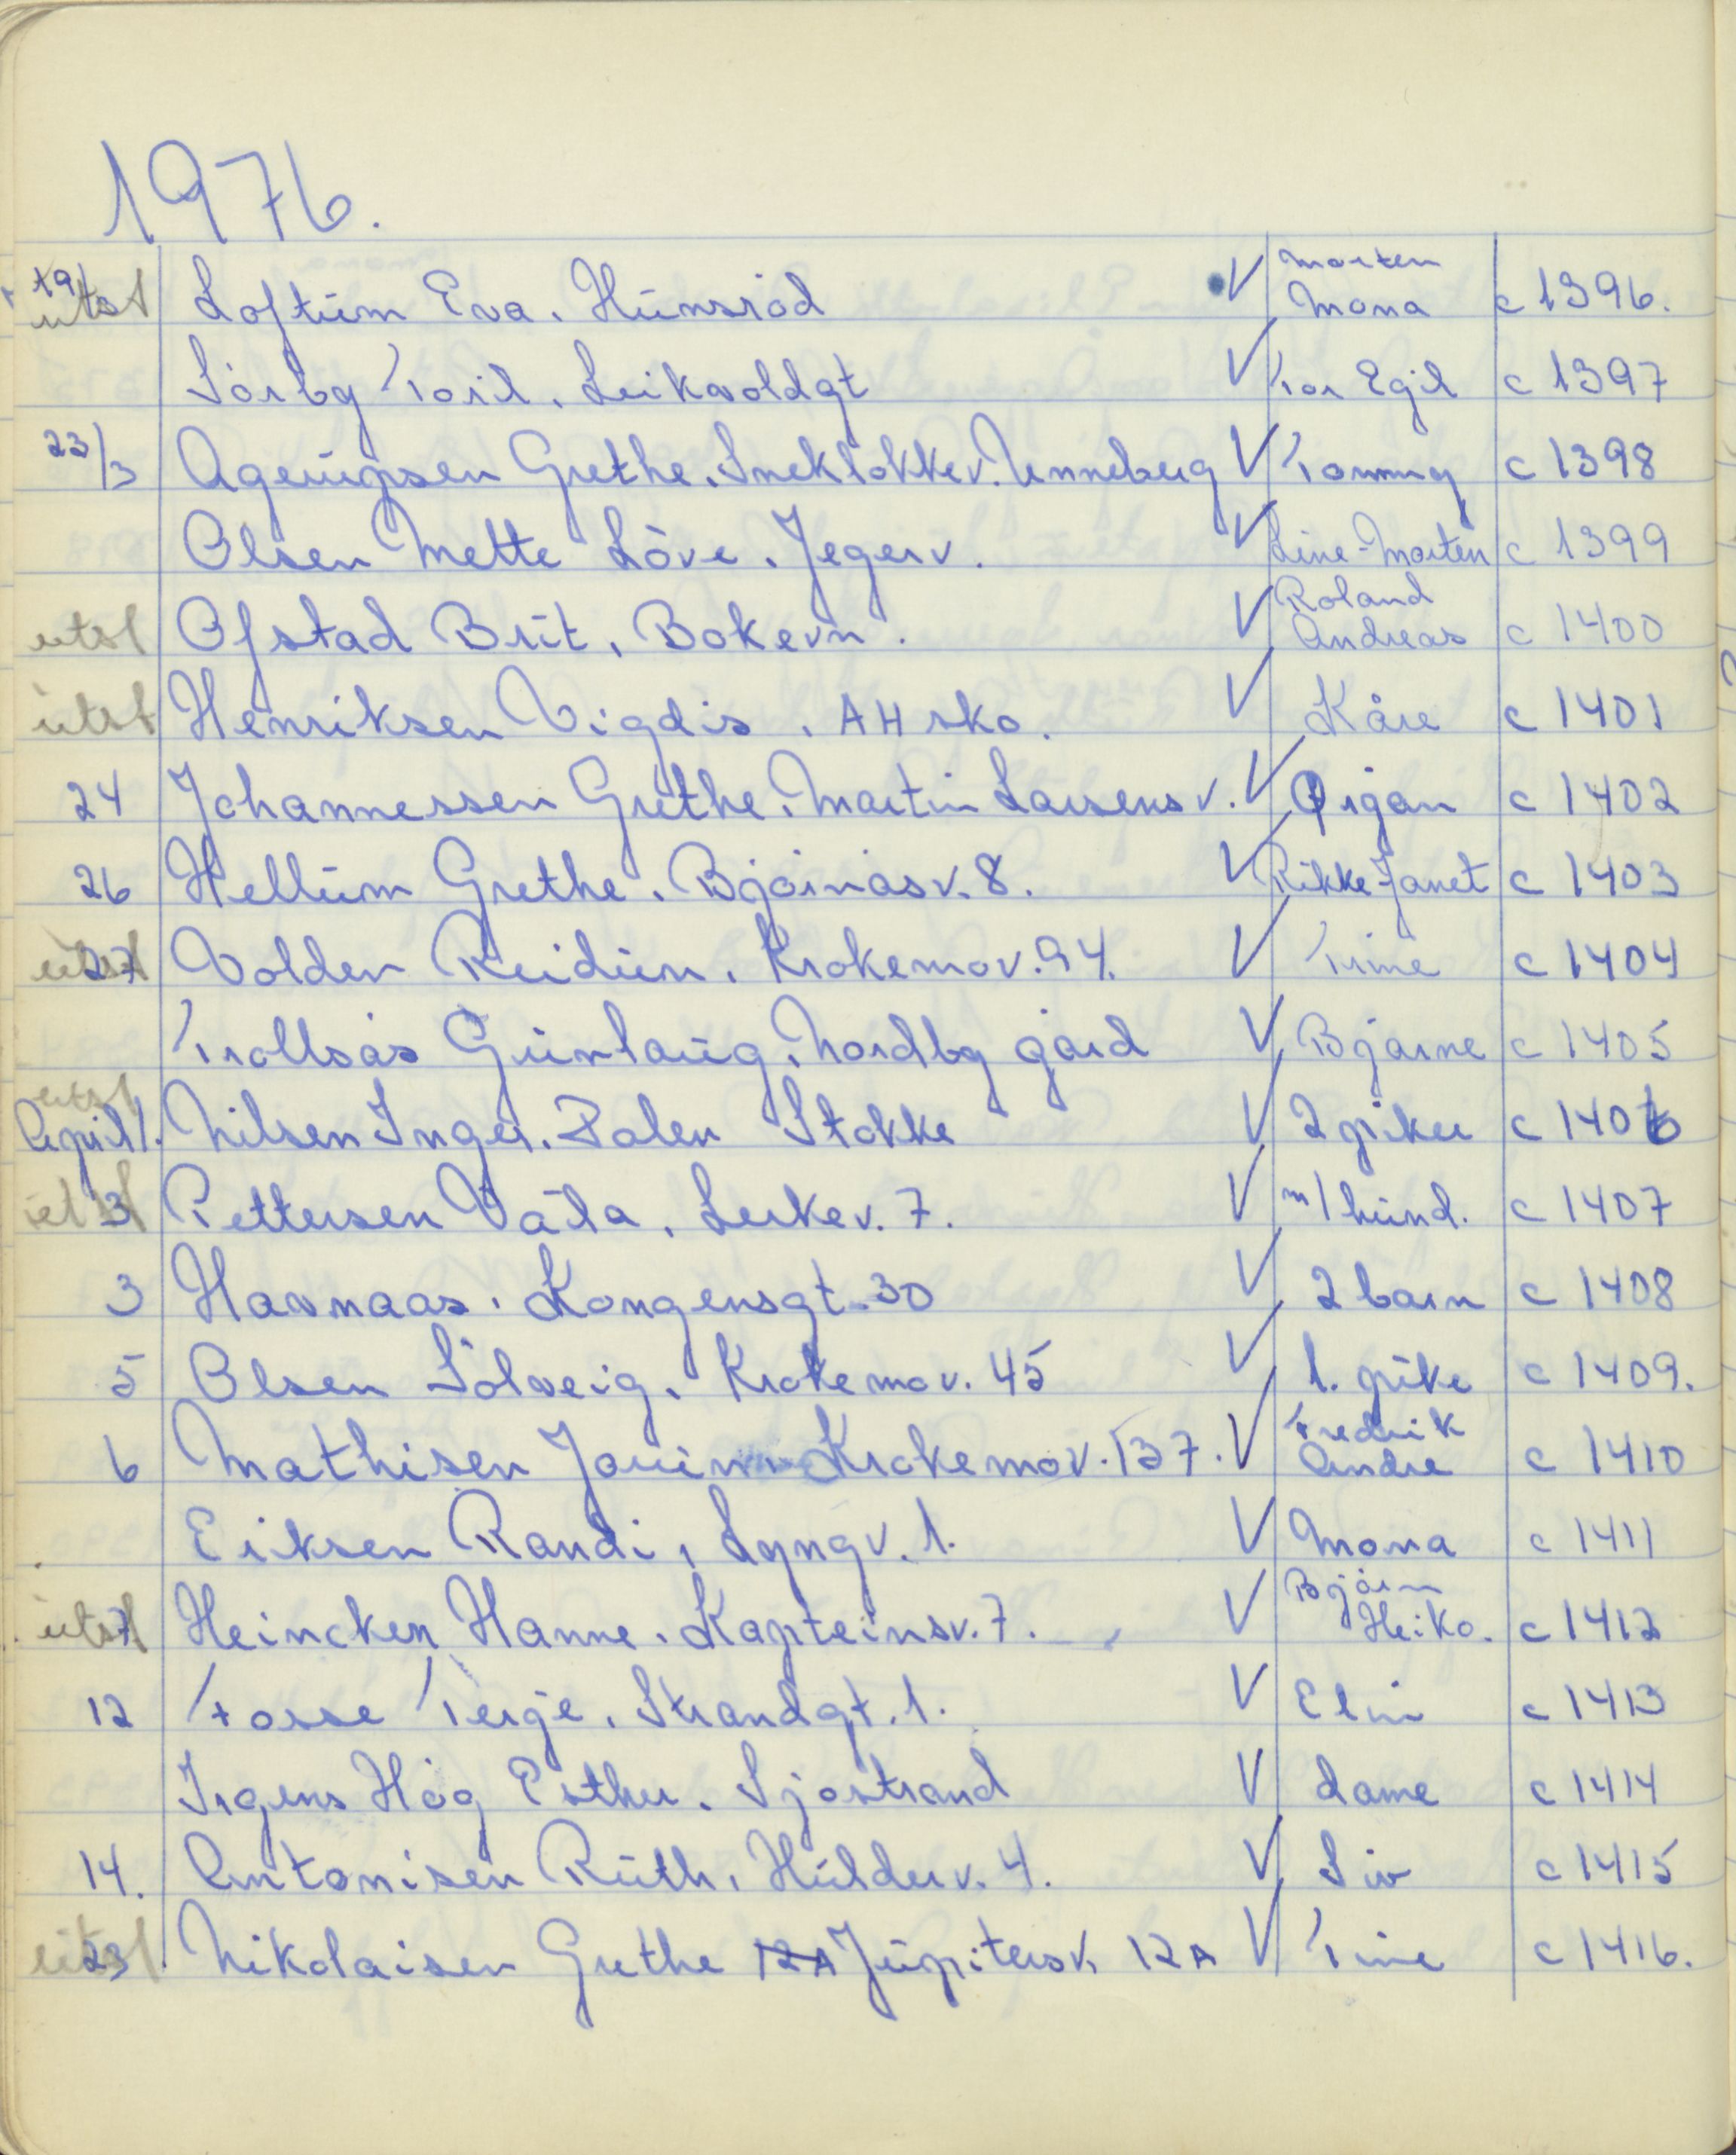 1976.
19/ utst Loftum Eva. Hunsrød V Morten Mona c 1396.
Sørby Toril. Leikvoldgt V Tor Egil c 1397
23/3 Grethe. Unneberg V Tommy c 1398
Olsen Mette Løve. Jegerv. V Line-Morten c 1399
utst Ofstad Brit. Bokevn. V Roland Andreas c 1400
utst Henriksen Vigdis. AH sko. V Kåre c 1401
24 Johannessen Grethe. Martin Larsens v. V Ørjan c 1402
26 Hellum Grethe. Bjørnåsv. 8. V Rikke Janet c 1403
utst 27 Volden Reidun. Krokemov. 94. V Trine c 1404
Trollsås Gunlaug. Nordby gård V Bjarne c 1405
utst April 1. Nilsen Inger. Dalen Stokke V 2 piker c 1406
utst 3 Pettersen Våla. Lerkev. 7. V m/hund. c 1407
3 Havnaas. Kongensgt. 30 V 2 barn c 1408
5 Olsen Sølveig. Krokemov. 45 V 1. pike c 1409.
6 Mathisen Jorunn Krokemov. 137. V Fredrik Andre c 1410
Eriksen Randi. Lyngv. 1. V Mona c 1411
utst 7 Heincken Hanne. Kapteinsv. 7. V Bjørn Heiko. c 1412
12 Fosse Terje. Strandgt. 1. V Elin c 1413
Irgens Høg Esther. Sjøstrand V dame c 1414
14. Antonisen Ruth. Hulderv. 4. V Siv c 1415
utst 23 Nikolaisen Grethe 12A Jupitersv. 12A V Tine c 1416.